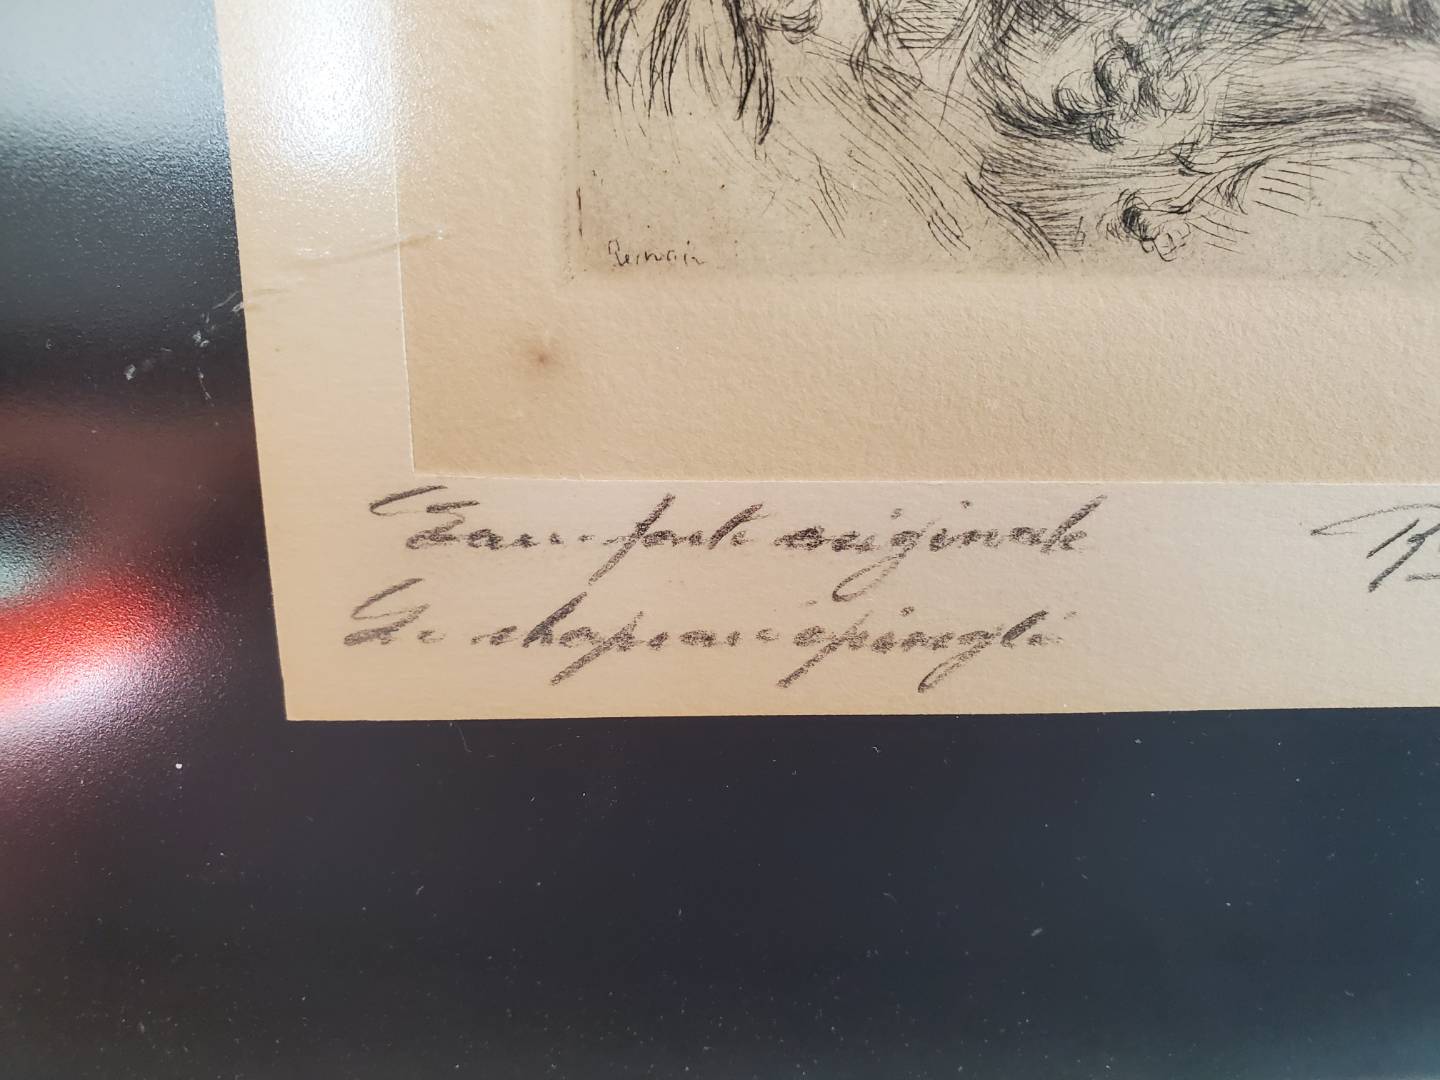 Renoir
Eau-forte originale
Le chapeau épinglé